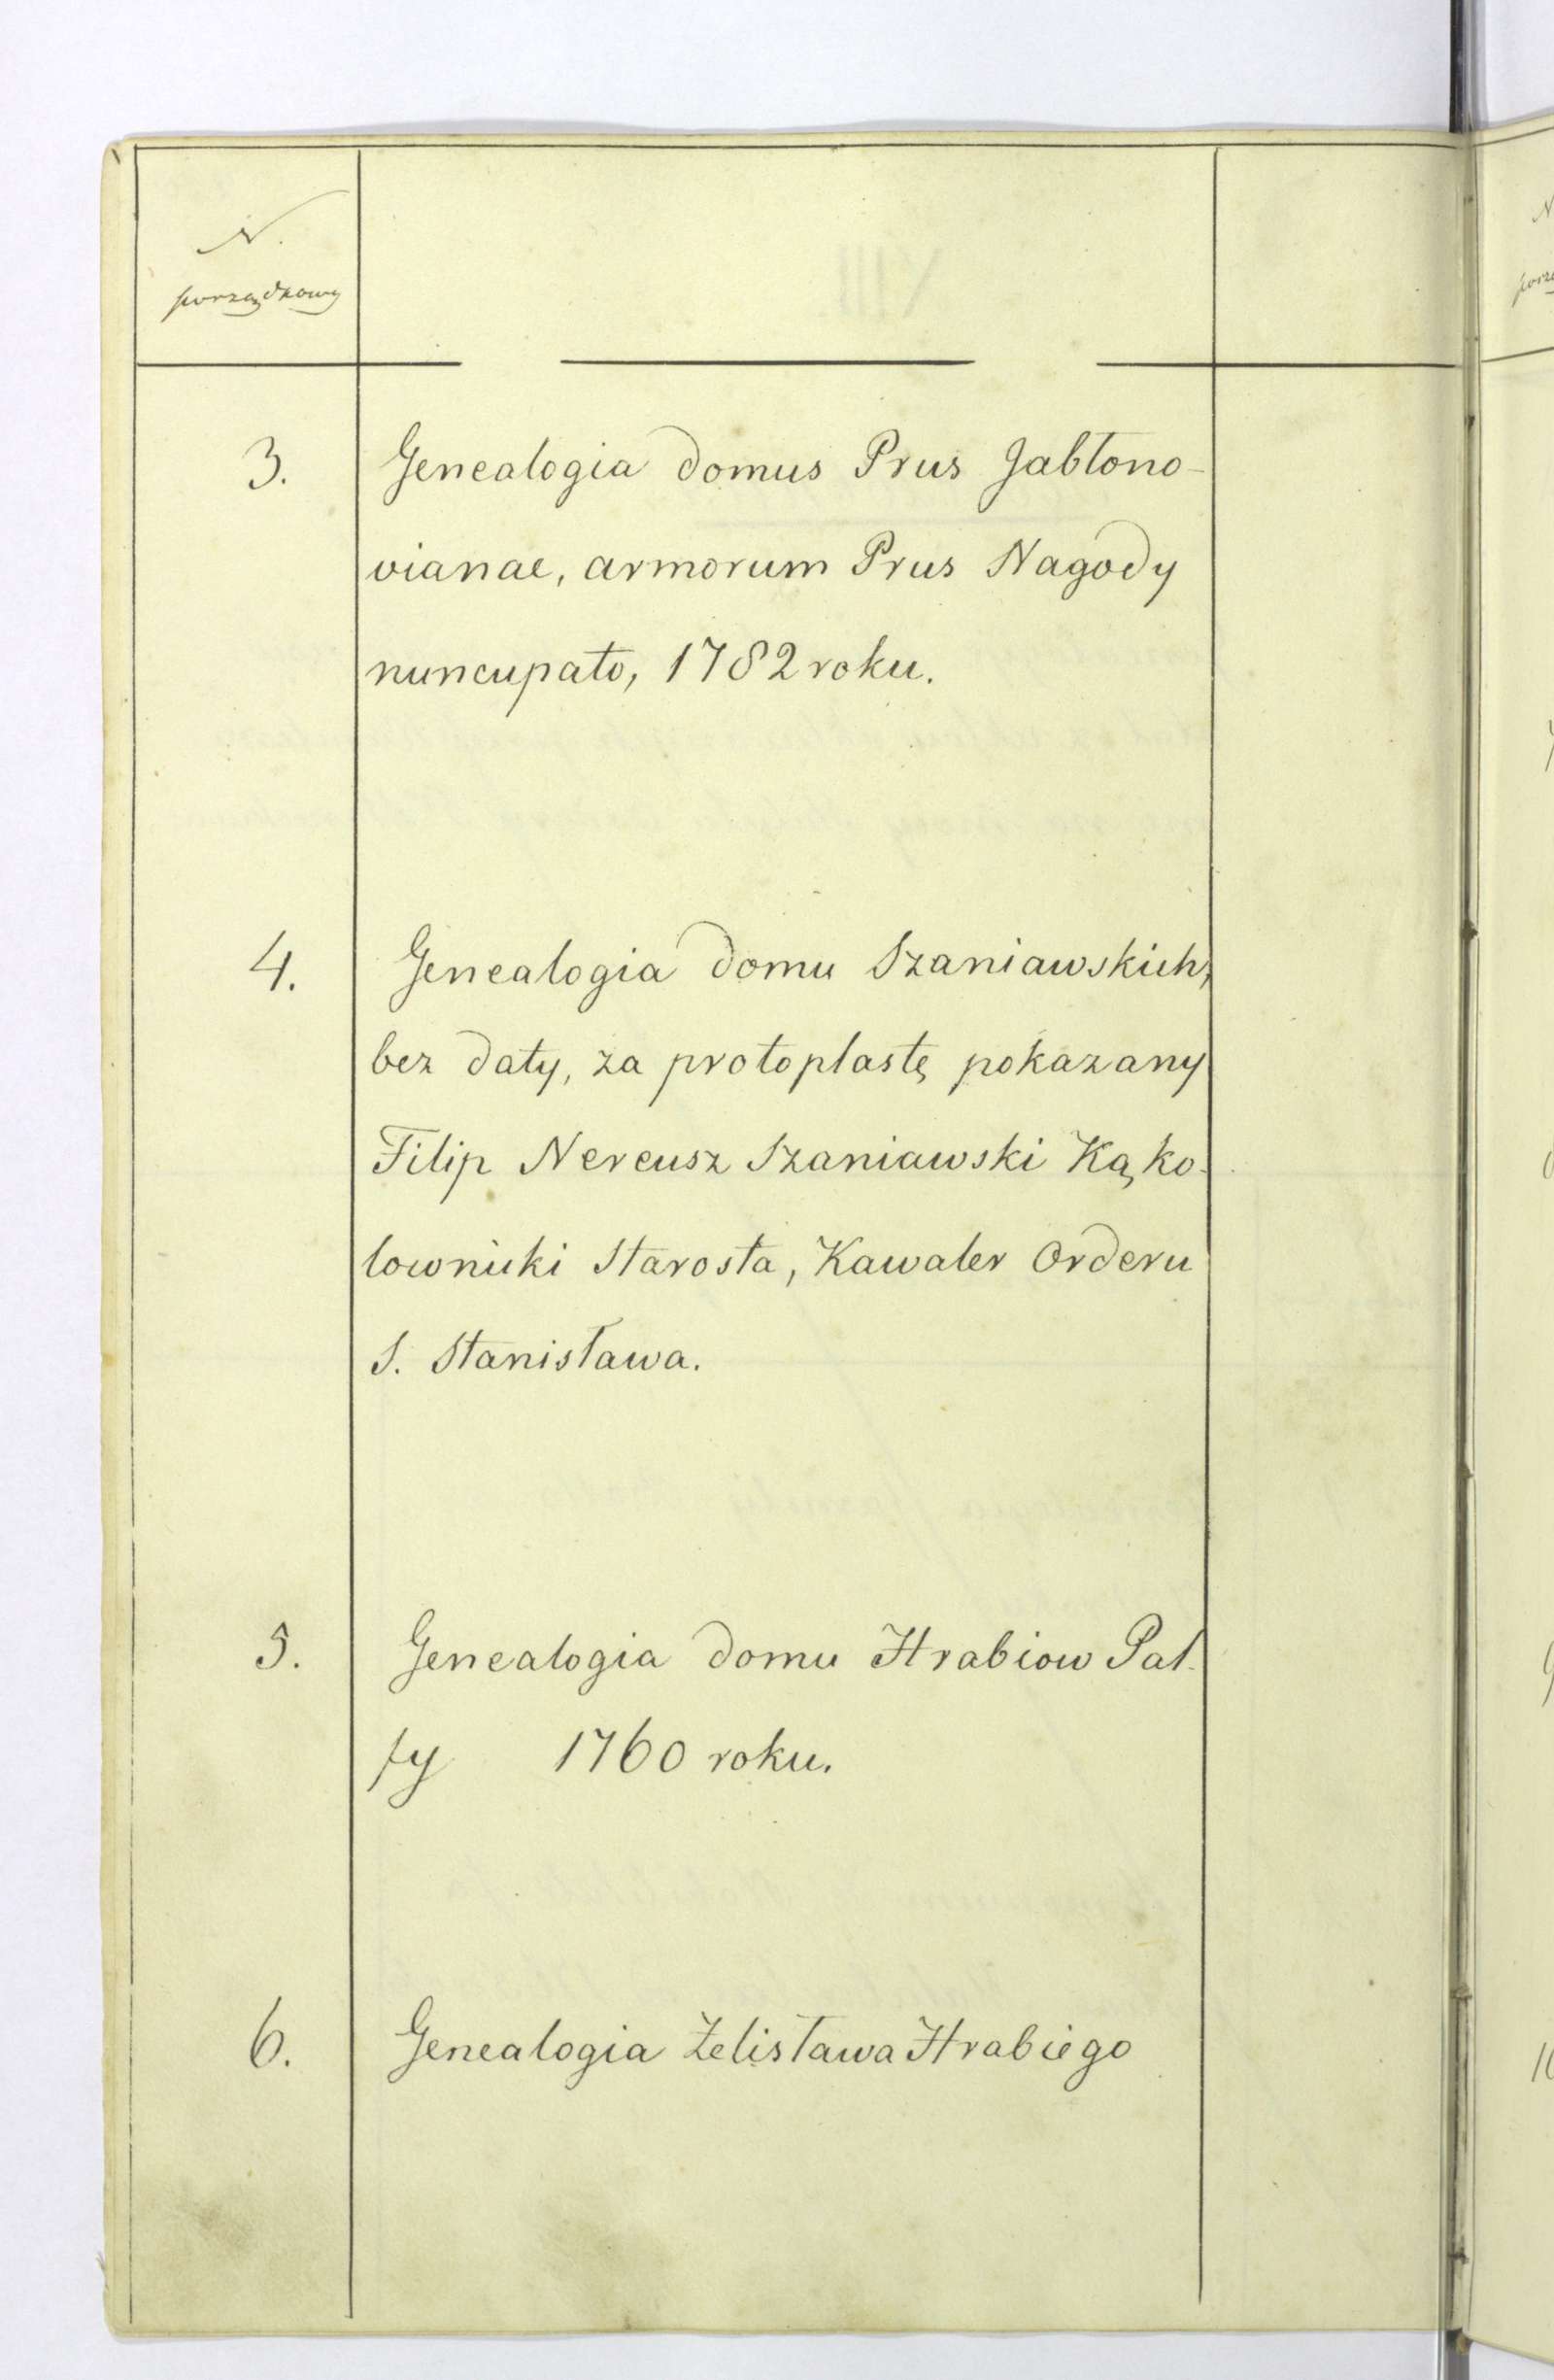 N.
porządkowy
3. Genealogia domus Prus Jabłono-
vianae, armorum Prus Nagody
nuncupato, 1782 roku.
4. Genealogia domu Szaniawskich,
bez daty, za protoplastę pokazany
Filip Nereusz Szaniawski Kąko-
lownicki Starosta, Kawaler Orderu
S. Stanisława.
5. Genealogia domu Hrabiow Pal-
fy 1760 roku.
6. Genealogia Żelisława Hrabiego